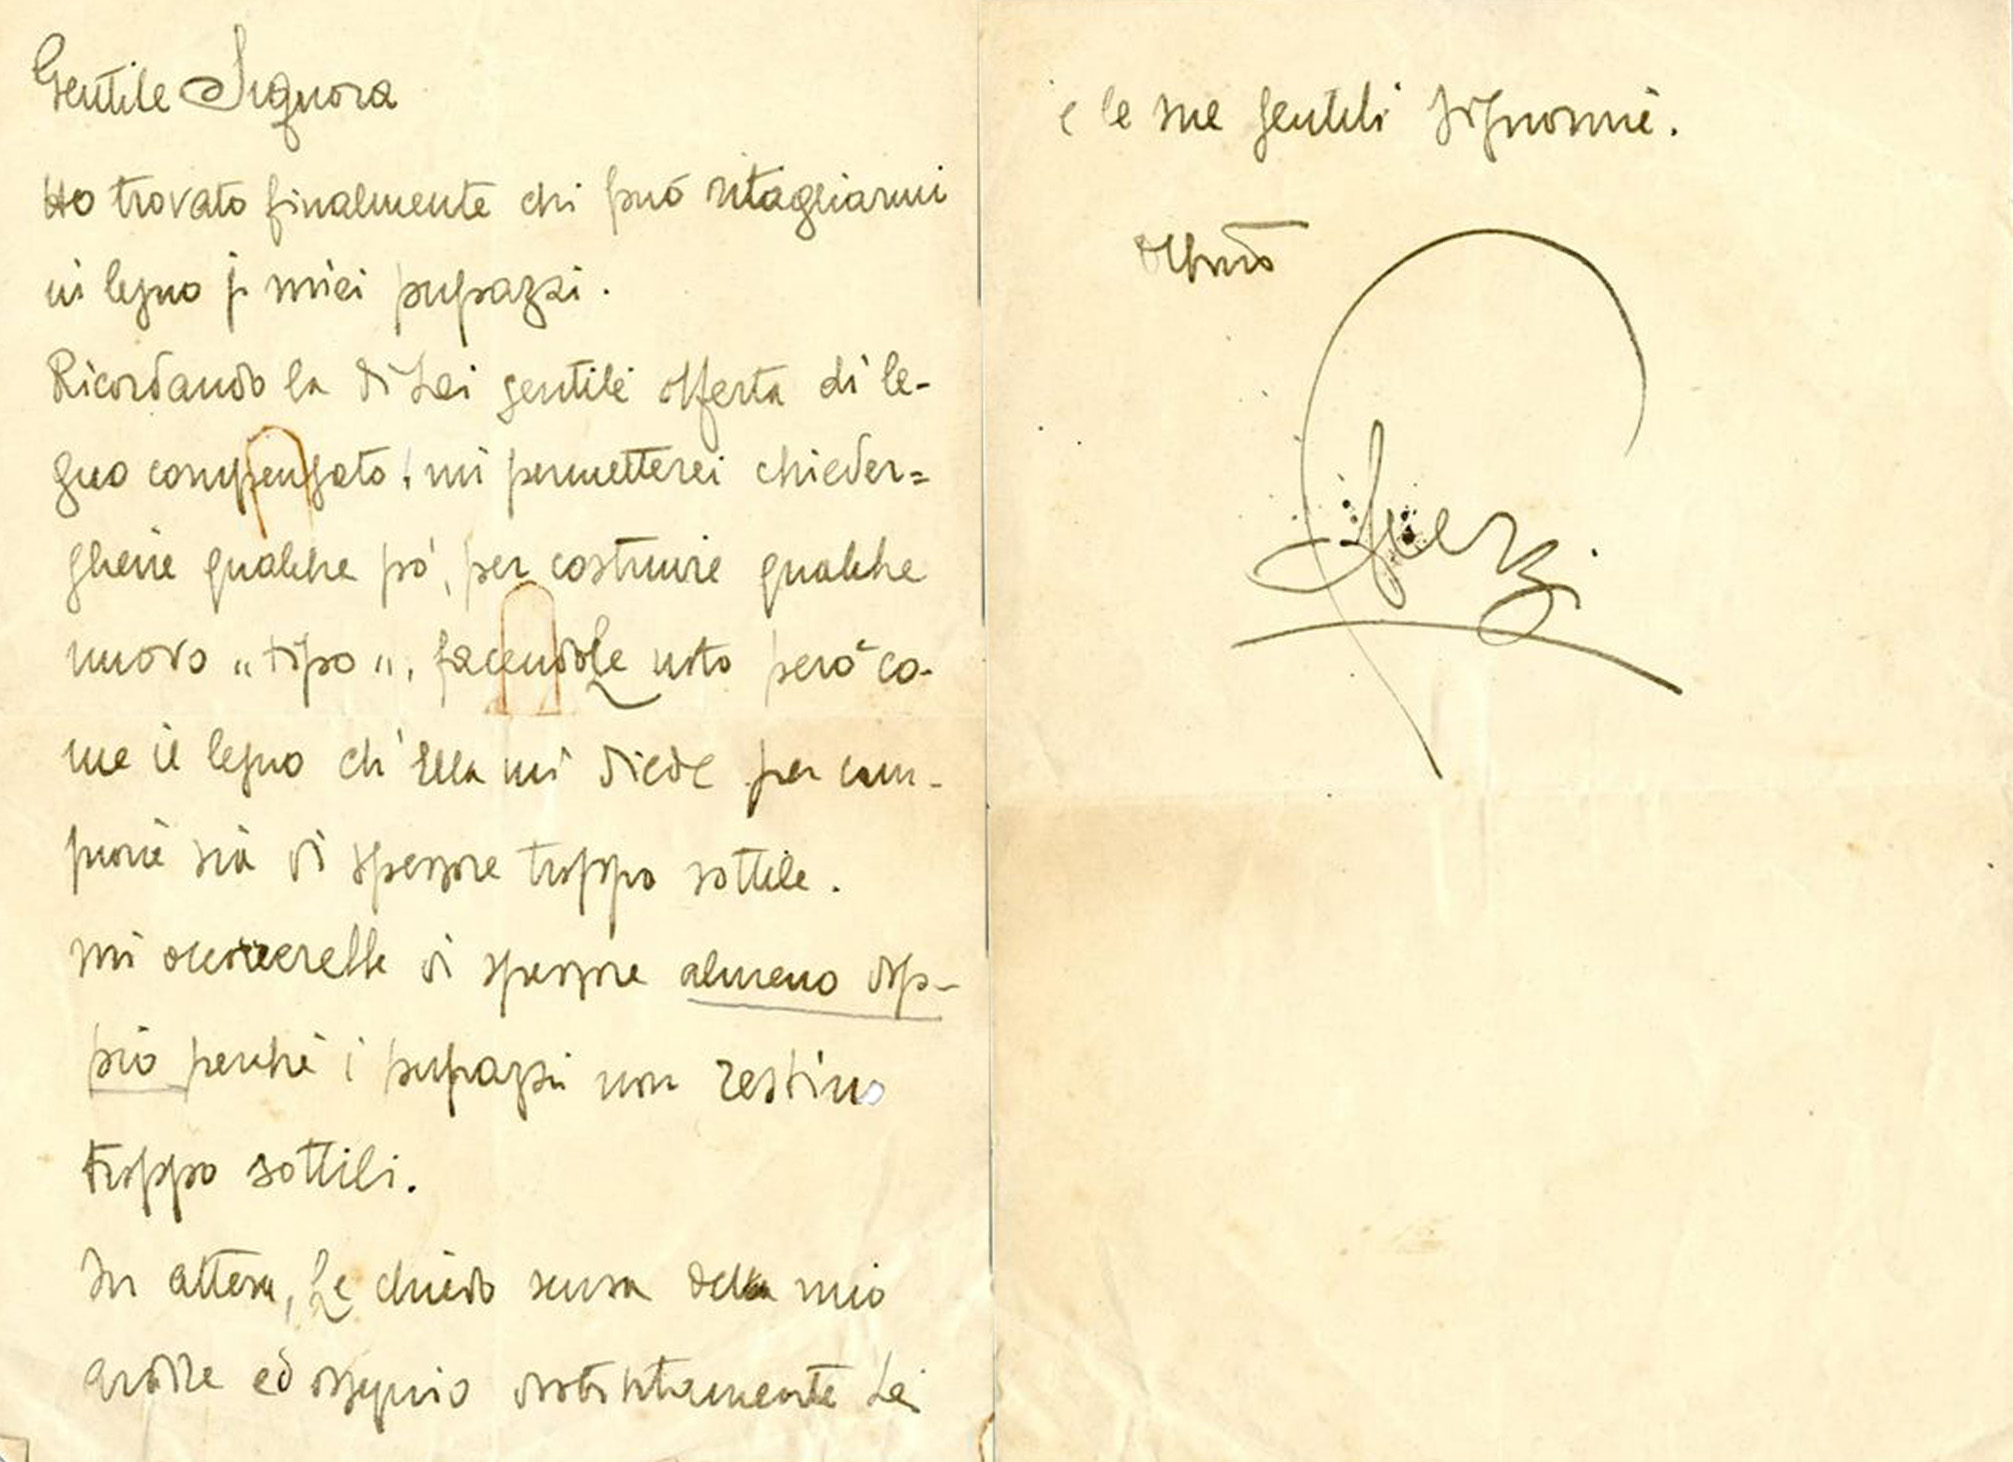 Gentile Signora
Ho trovato finalmente chi può ritagliarmi
in legno i miei pupazzi.
Ricordando la di Lei gentile offerta di le-
gno compensato, mi permetterei chieder=
gliene qualche pò, per costruire qualche
nuovo "tipo", facendole noto però co-
me il legno ch'Ella mi diede per cam-
pione sia di spessore troppo sottile.
Mi occorrerebbe di spessore almeno dop-
pio perchè i pupazzi non restino
troppo sottili.
In attesa, Le chiedo scusa del mio
ardire ed ossequio distintamente Lei
e le sue gentili signorine.